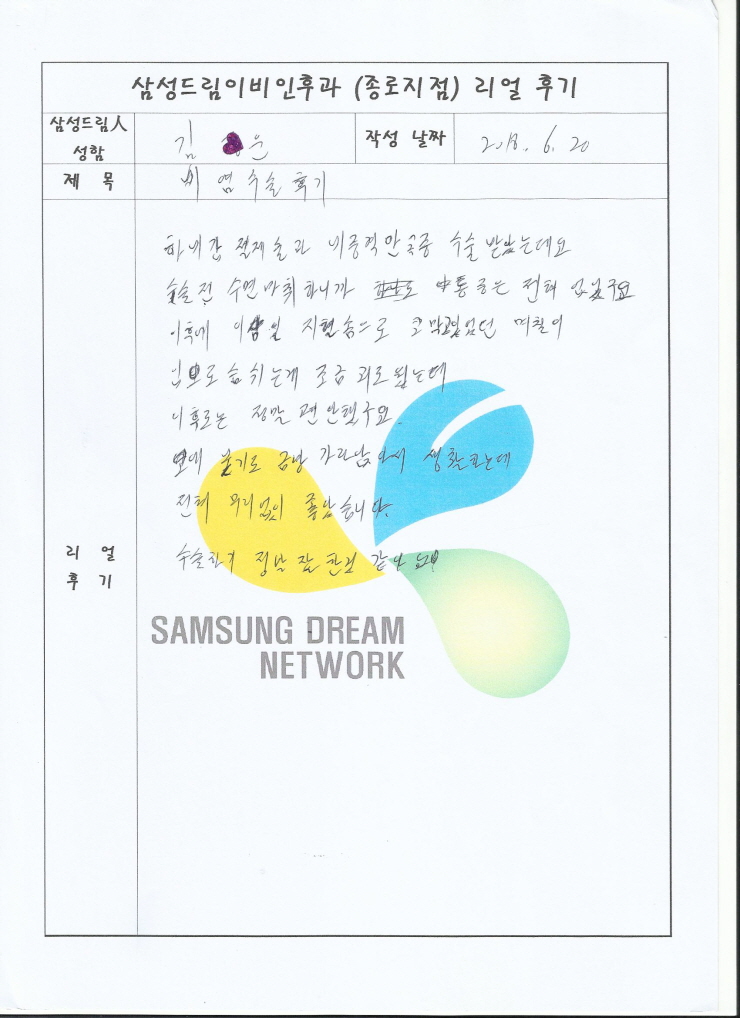 삼성드림이비인후과 (종로지점) 리얼 후기
삼성드림人 성함
김 운
작성 날짜
2018. 6. 20
제 목
비염수술 후기
리 얼 후 기
하비갑 절제술과 비중격만곡증 수술 받았는데요
수술전 수면마취하니까 통증은 전혀 없었구요
이후에 지혈솜으로 코막혔었던 며칠이
입으로 숨쉬는게 조금 괴로웠는데
이후로는 정말 편안했구요
붓기도 금방 가라앉아서 생활하는데
전혀 무리없이 좋았습니다.
수술하기 정말 잘한것 같아요
SAMSUNG DREAM
NETWORK